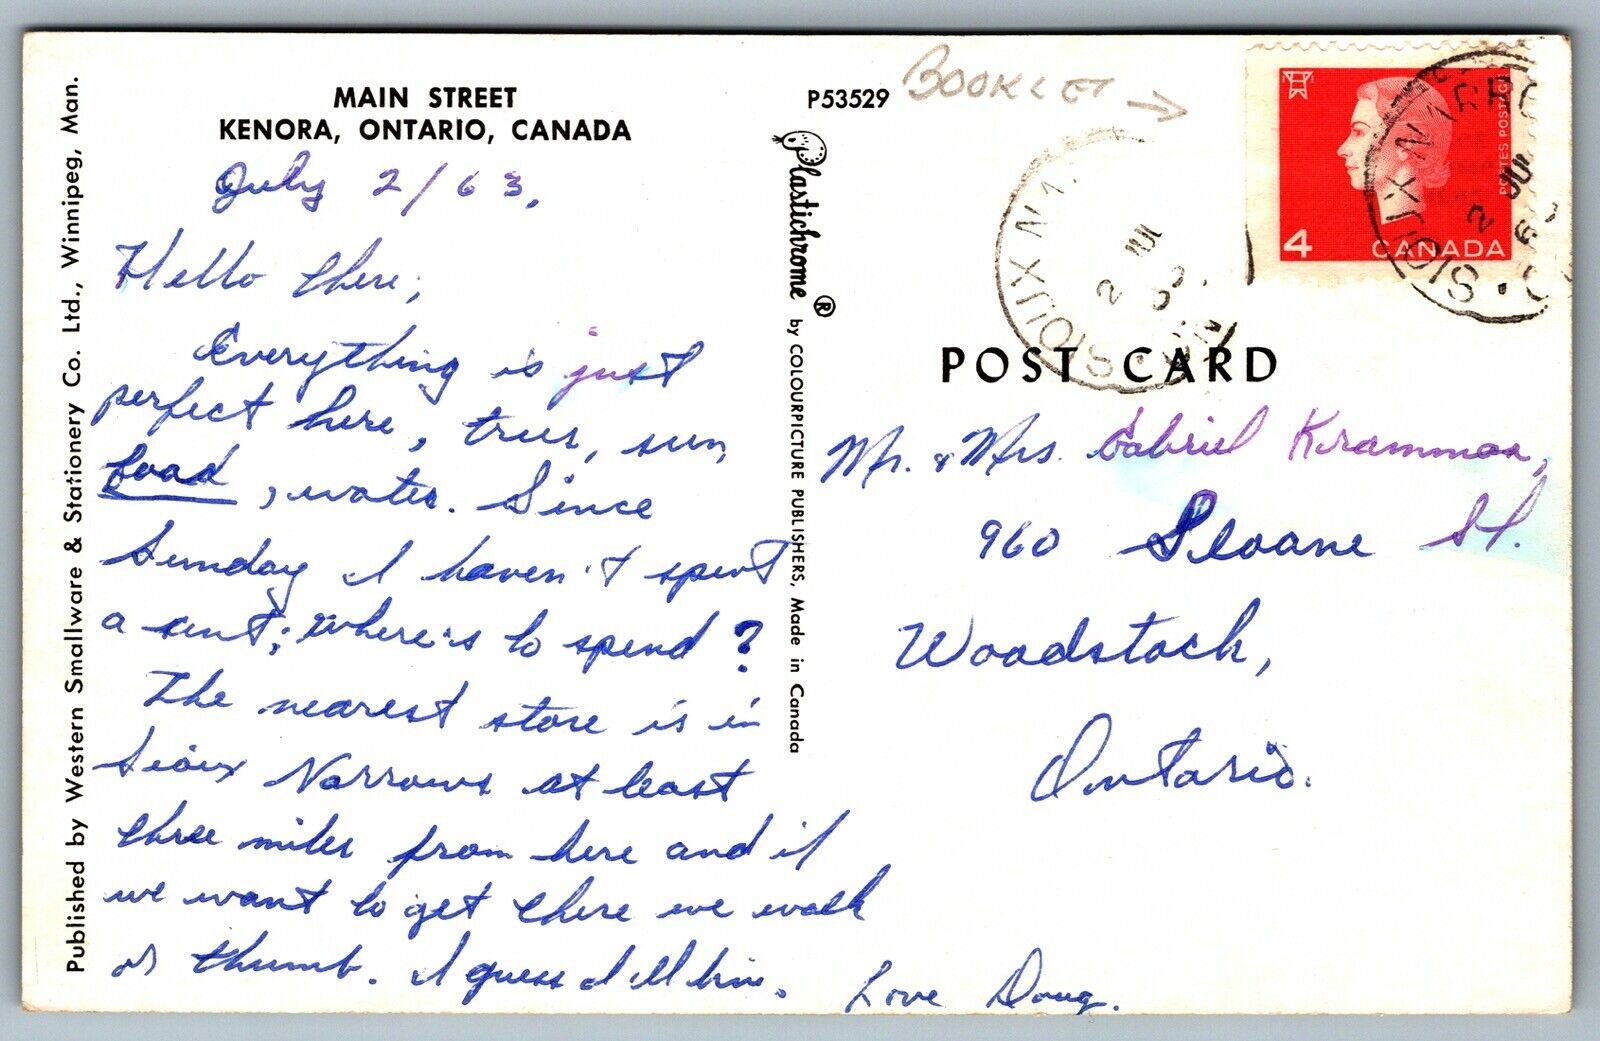 MAIN STREET
KENORA, ONTARIO, CANADA
July 2/63.
Hello there,
Everything is just
perfect here, trees, sun,
food, water. Since
Sunday I haven't spent
a cent; Where's to spend?
The nearest store is in
Sioux Narrows at least
three miles from here and if
we want to get there we walk
or thumb. I guess I'll live.
Love Doug.
Published by Western Smallware & Stationery Co. Ltd., Winnipeg, Man.
P53529
Plastichrome ® by COLOURPICTURE PUBLISHERS, Made in Canada
BOOKLET →
POST CARD
Mr. & Mrs. Gabriel
960 Sloane St.
Woodstock,
Ontario.
POSTES POSTAGE
4 CANADA
SIOUX NARRO
2 JUL
SIOUX N
2 JUL